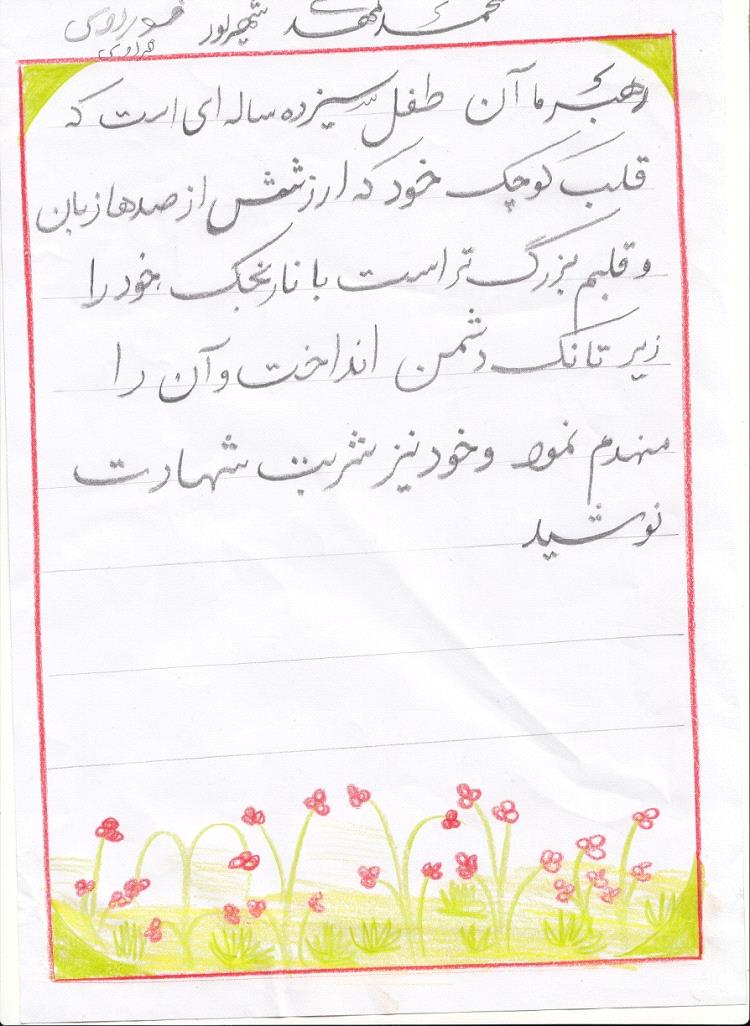 محمد مهدی شهریور
رهبر ما آن طفل سیزده ساله ای است که
قلب کوچک خود که ارزشش از صدها زبان
و قلبم بزرگ تر است با نارنجک خود را
زیر تانک دشمن انداخت و آن را
منهدم نمود و خود نیز شربت شهادت
نوشید